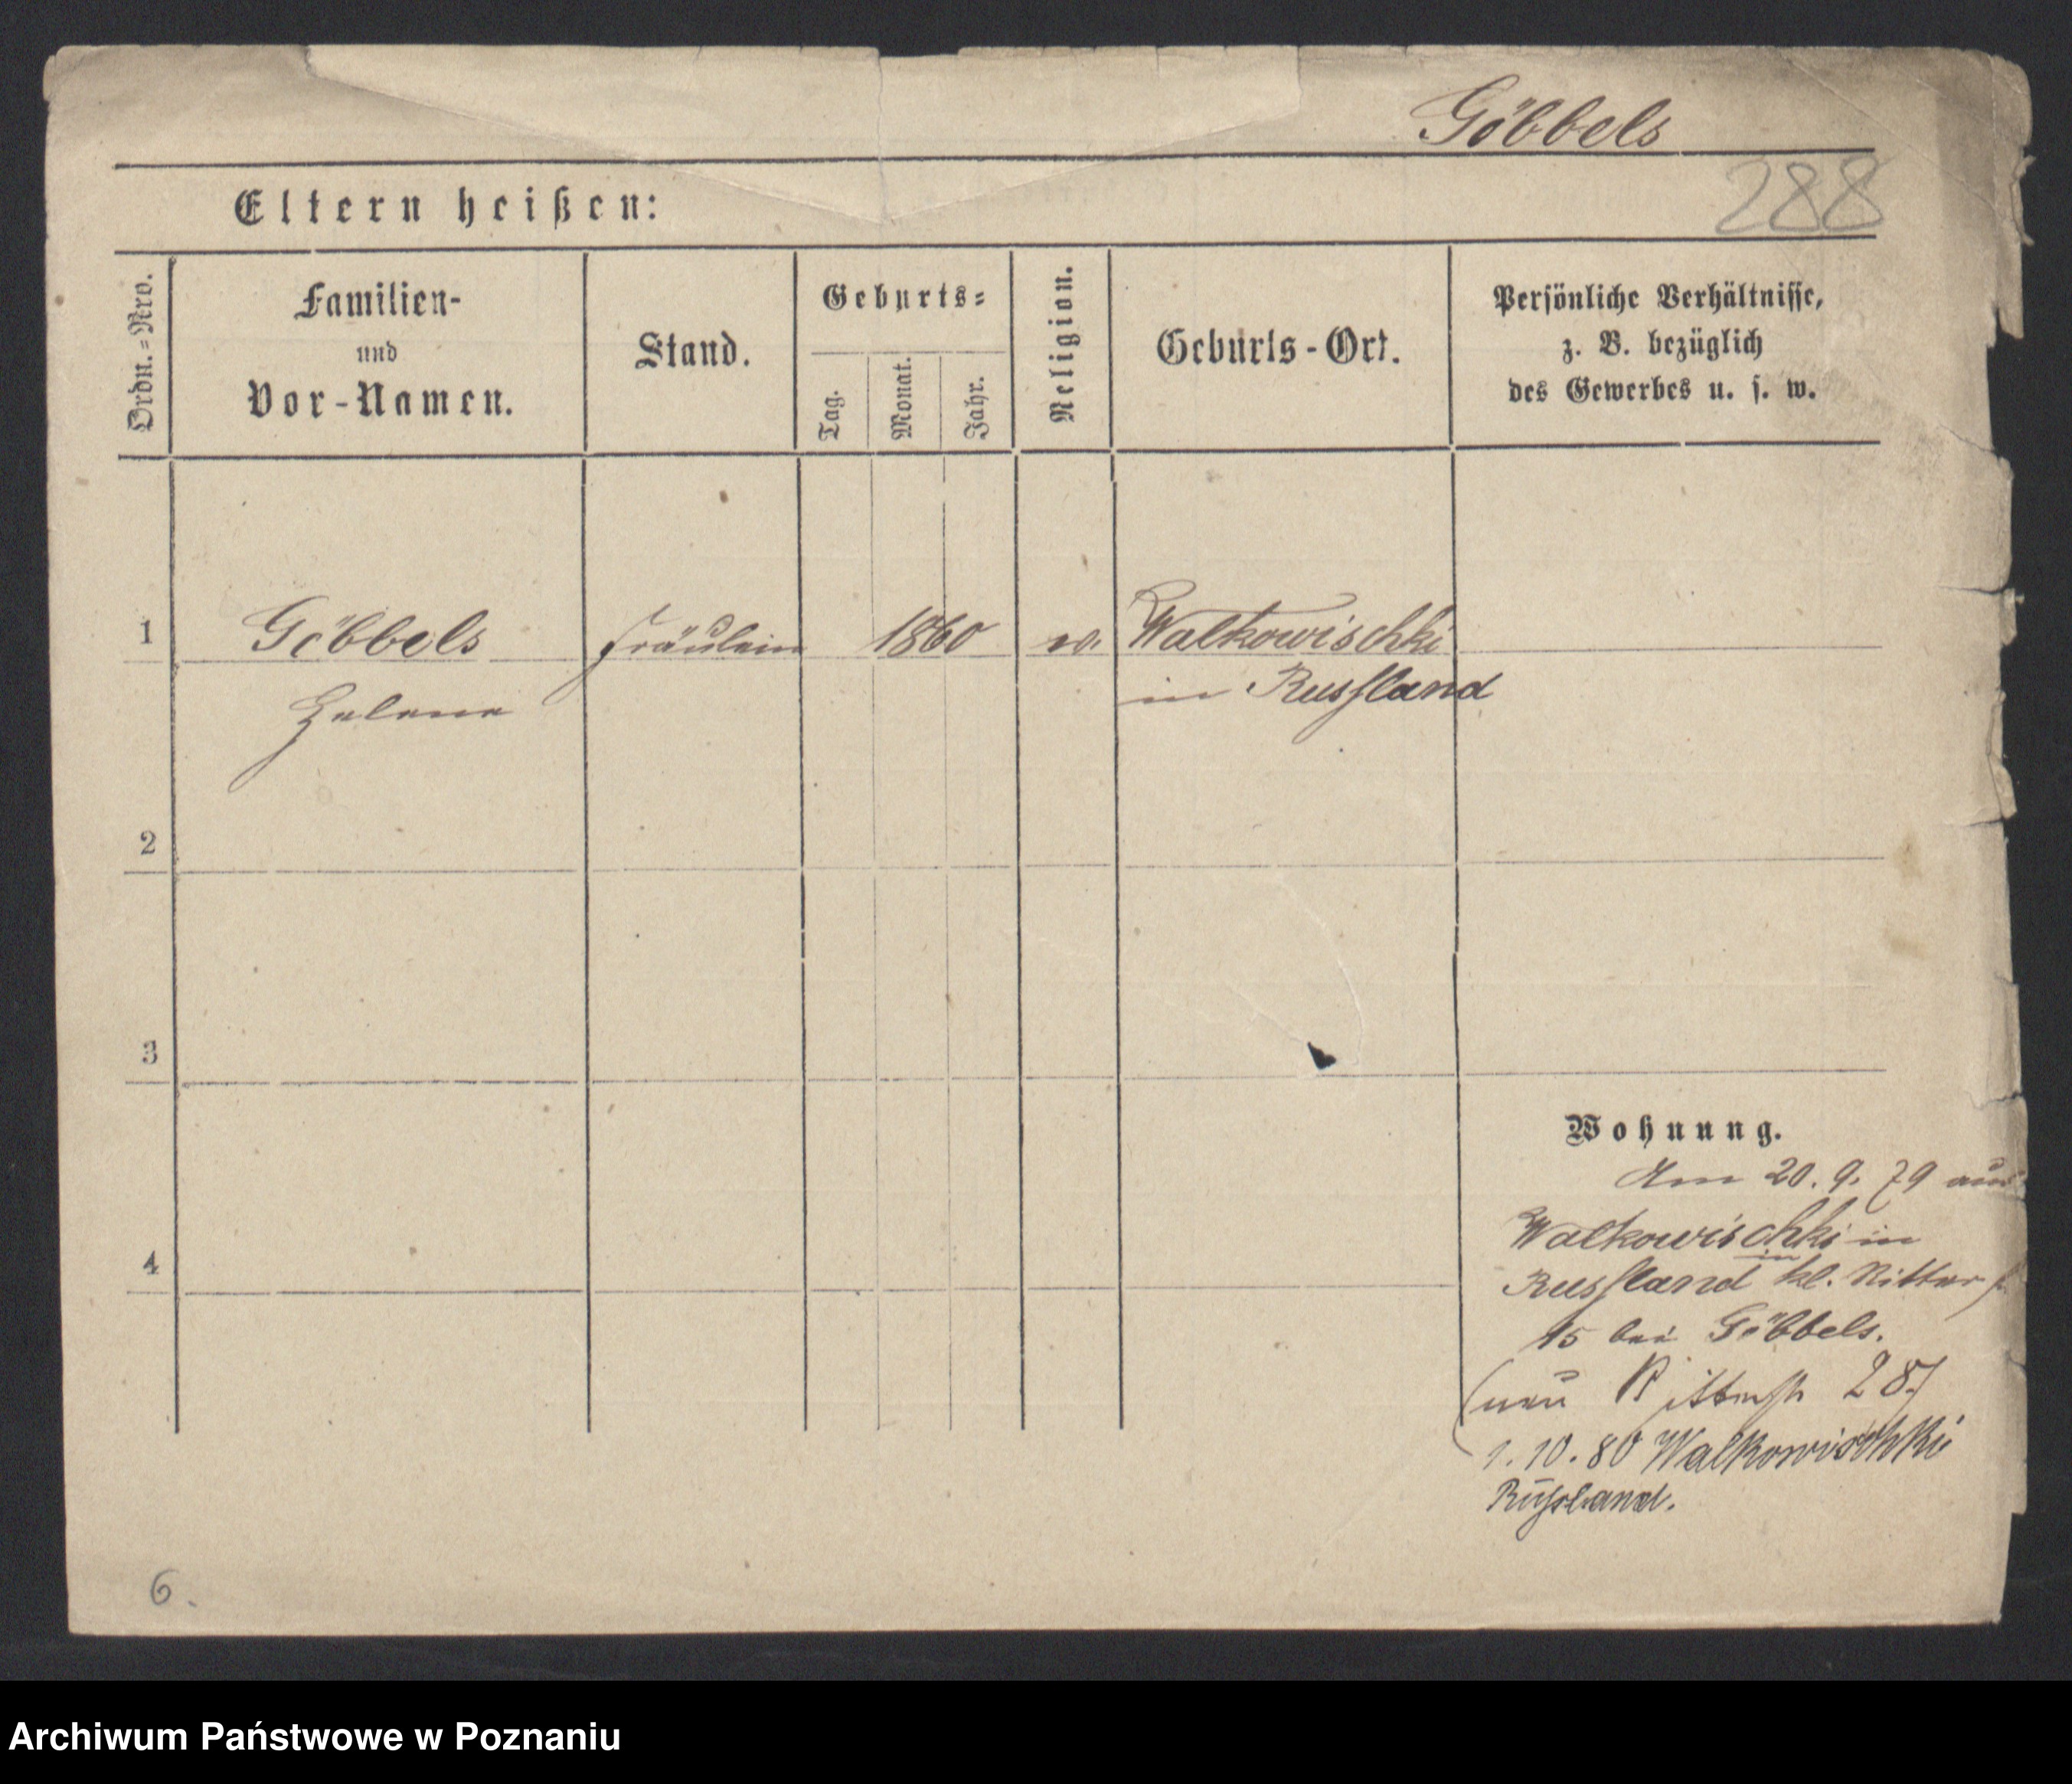 Göbbels
288
Eltern heißen:
Ordn.=Nro.
Familien-
und
Vor-Namen.
Stand.
Geburts=
Tag.
Monat.
Jahr.
Religion.
Geburts-Ort.
Persönliche Verhältnisse,
z. B. bezüglich
des Gewerbes u. s. w.
1 Göbbels Fräulein 1860 Walkowischki
Helene in Russland
2
3
Wohnung.
Am 20. 9. 79 aus
Walkowischki in
4
Russland kl. Ritter
15 bei Göbbels.
(neu Ritterstr 28)
1. 10. 80 Walkowischki
Rußland.
6.
Archiwum Państwowe w Poznaniu